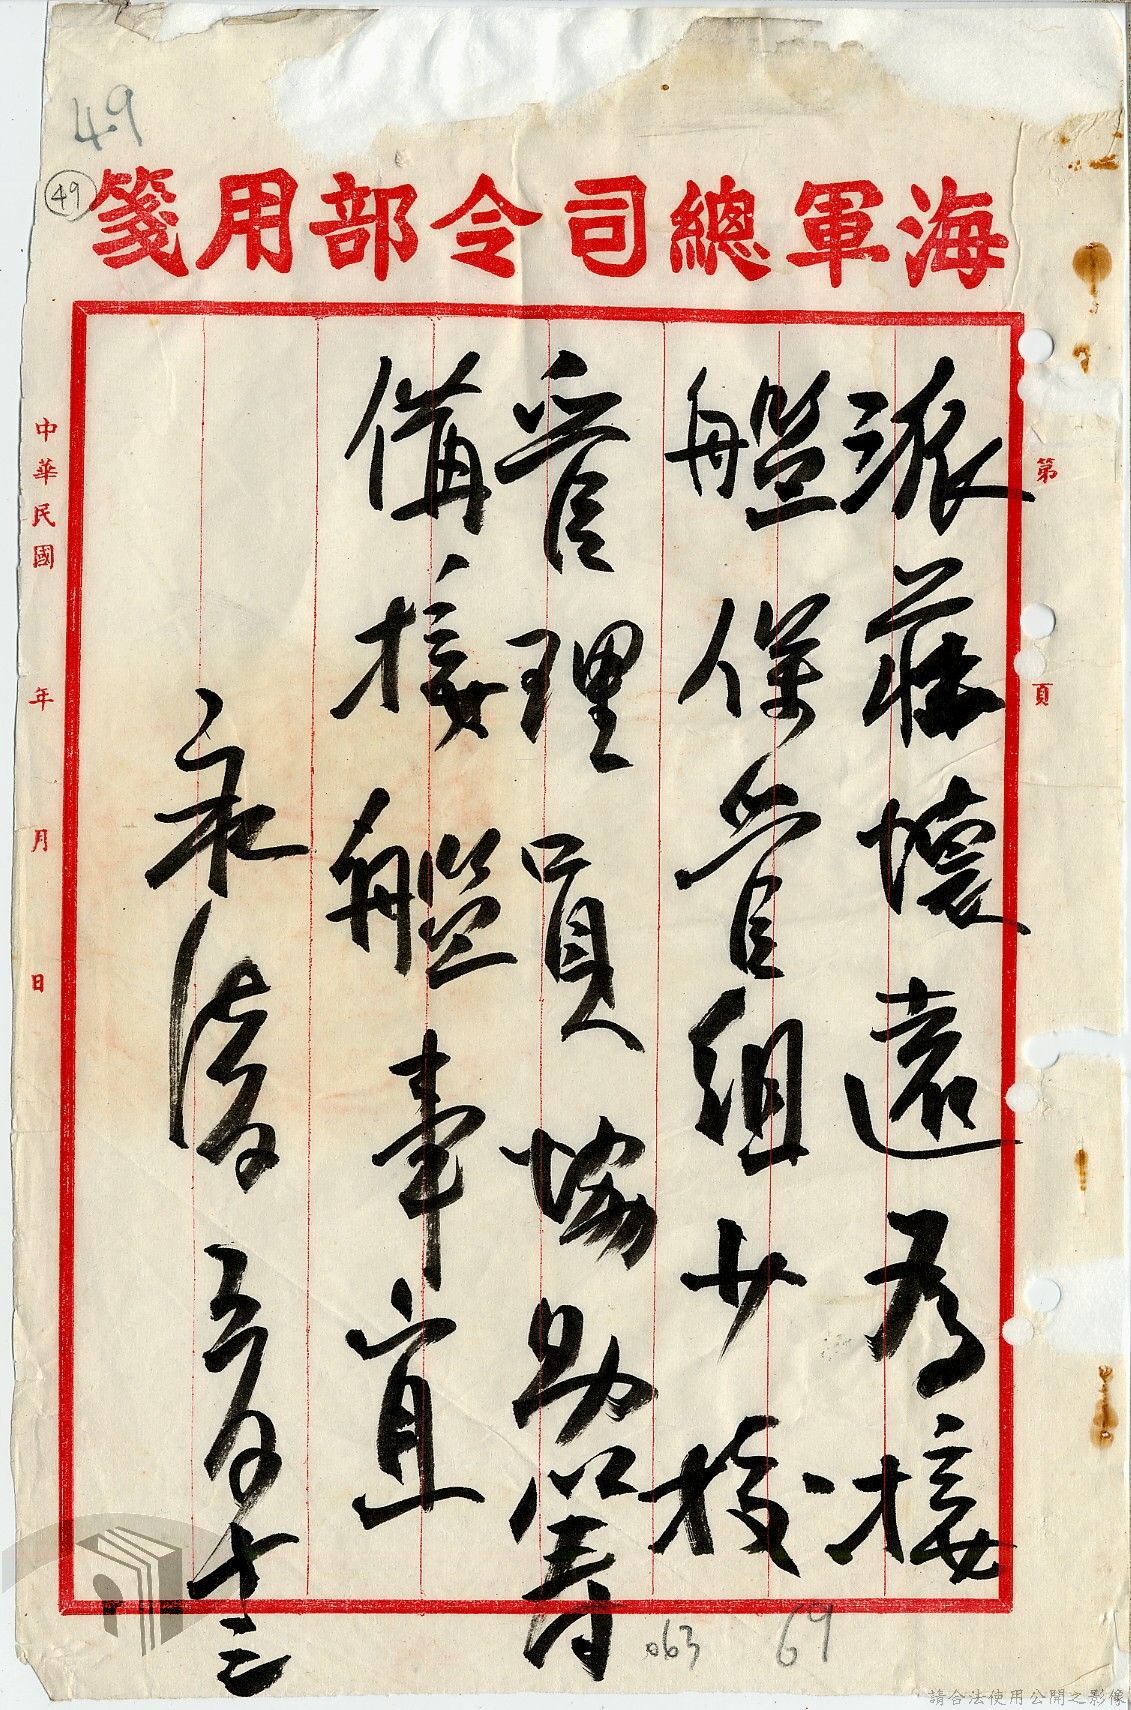 海軍總司令部用箋
第　頁
派莊懷遠為接
艦保管組少校
管理員協助籌
備接艦事宜
永清　月十三
中華民國　年　月　日
49
49
063
69
請合法使用公開之影像